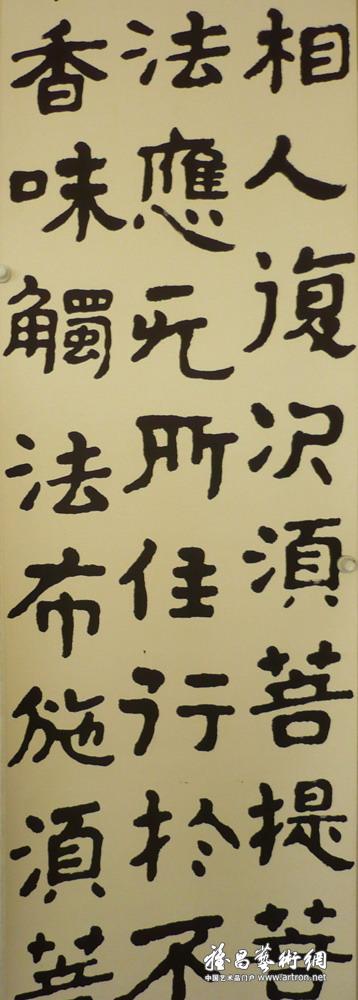 相人復次須菩提菩
法應无所住行於不
香味觸法布施須菩
雅昌藝術網
中国艺术品门户 www.artron.net